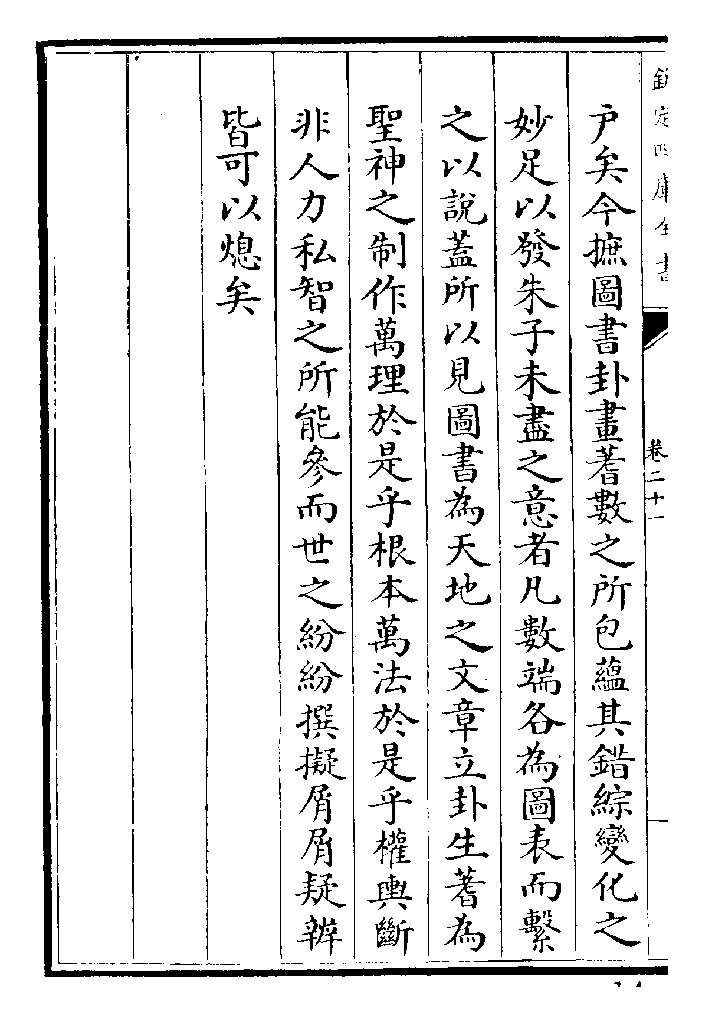 欽定四庫全書
卷二十一
戸矣今摭圖書卦畫蓍數之所包蘊其錯綜變化之
妙足以發朱子未盡之意者凡數端各為圖表而繫
之以說蓋所以見圖書為天地之文章立卦生蓍為
聖神之制作萬理於是乎根本萬法於是乎權輿斷
非人力私智之所能參而世之紛紛撰擬屑屑疑辨
皆可以熄矣